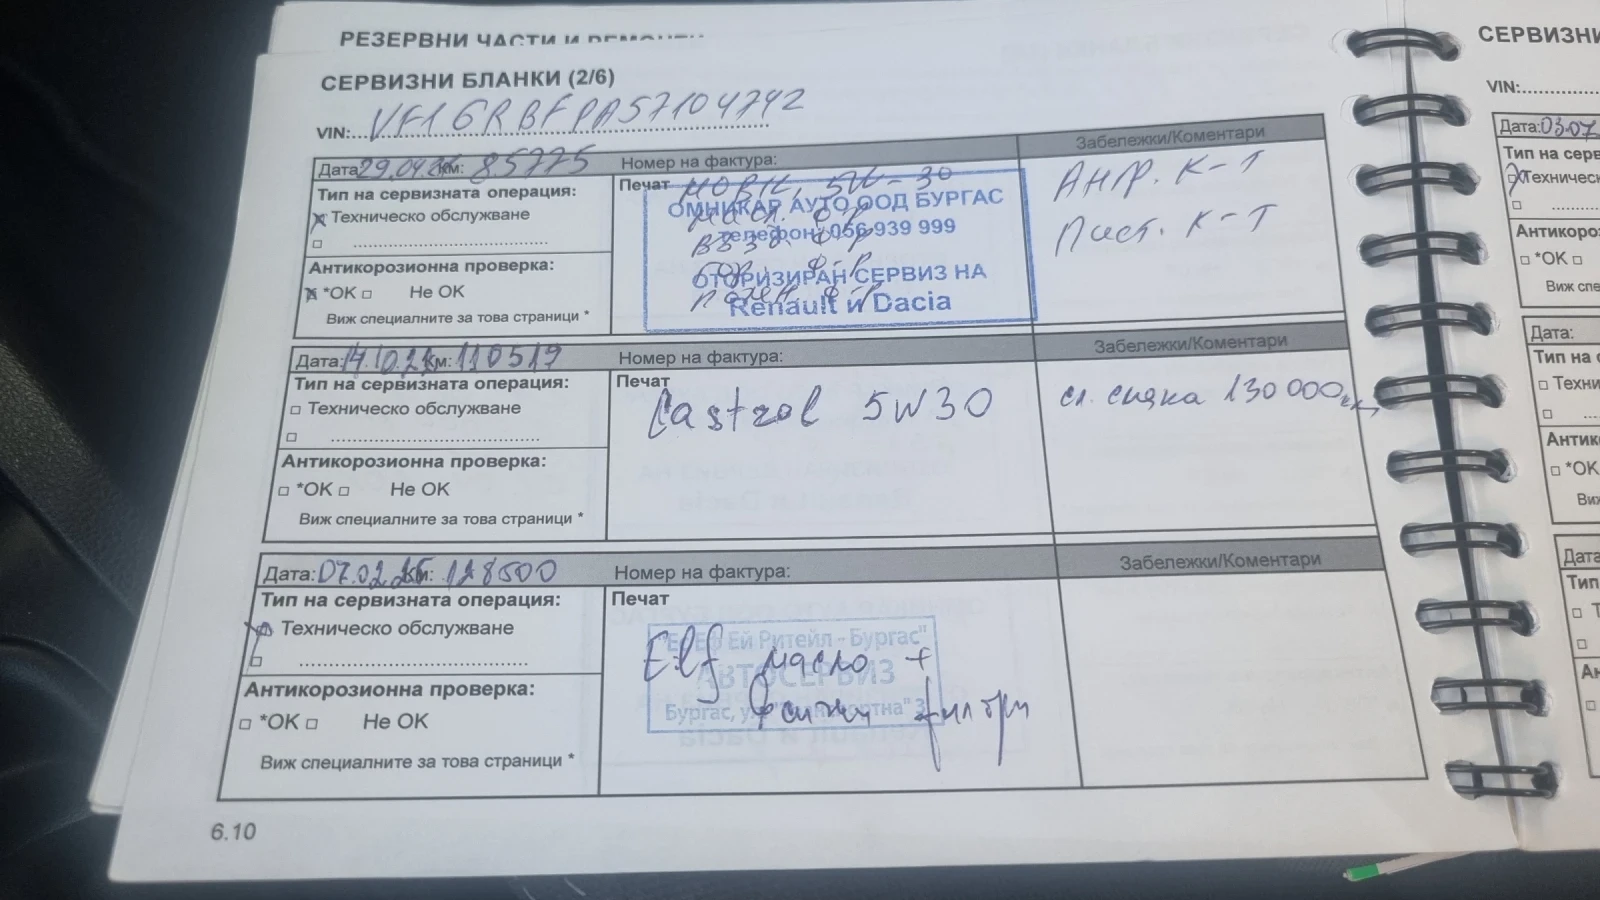 РЕЗЕРВНИ ЧАСТИ И РЕМОНТИ
СЕРВИЗНИ БЛАНКИ (2/6)
VIN: VF16RBFPA57104742
Дата: 29.04. км: 85775 Номер на фактура: Забележки/Коментари
Тип на сервизната операция:
Техническо обслужване
Антикорозионна проверка:
*OK Не OK
Виж специалните за това страници *
Печат
5W-30
ОМНИКАР АУТО ООД БУРГАС
масл. ф-р
телефон: 056 939 999
възд. ф-р
ОТОРИЗИРАН СЕРВИЗ НА
ф-р
Renault и Dacia
Антр. к-т
Пист. к-т
Дата: 14.10.24 км: 110519 Номер на фактура: Забележки/Коментари
Тип на сервизната операция:
Техническо обслужване
Антикорозионна проверка:
*OK Не OK
Виж специалните за това страници *
Печат
Castrol 5W30
сл. смяна 130 000 км
Дата: 07.02.25 км: 128500 Номер на фактура: Забележки/Коментари
Тип на сервизната операция:
Техническо обслужване
Антикорозионна проверка:
*OK Не OK
Виж специалните за това страници *
Печат
Ей Ритейл - Бургас"
АВТОСЕРВИЗ
Бургас, ул. "
Elf масло +
всички филтри
6.10
СЕРВИЗНИ
VIN:
Дата: 03.07
Тип на серв
Техническ
Антикороз
*OK
Виж спе
Дата:
Тип на с
Техни
Антик
*OK
Ви
Дата
Тип
Т
Ан